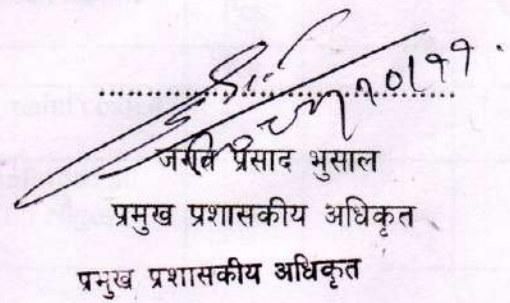 १०।११
जगत प्रसाद भुसाल
प्रमुख प्रशासकीय अधिकृत
प्रमुख प्रशासकीय अधिकृत